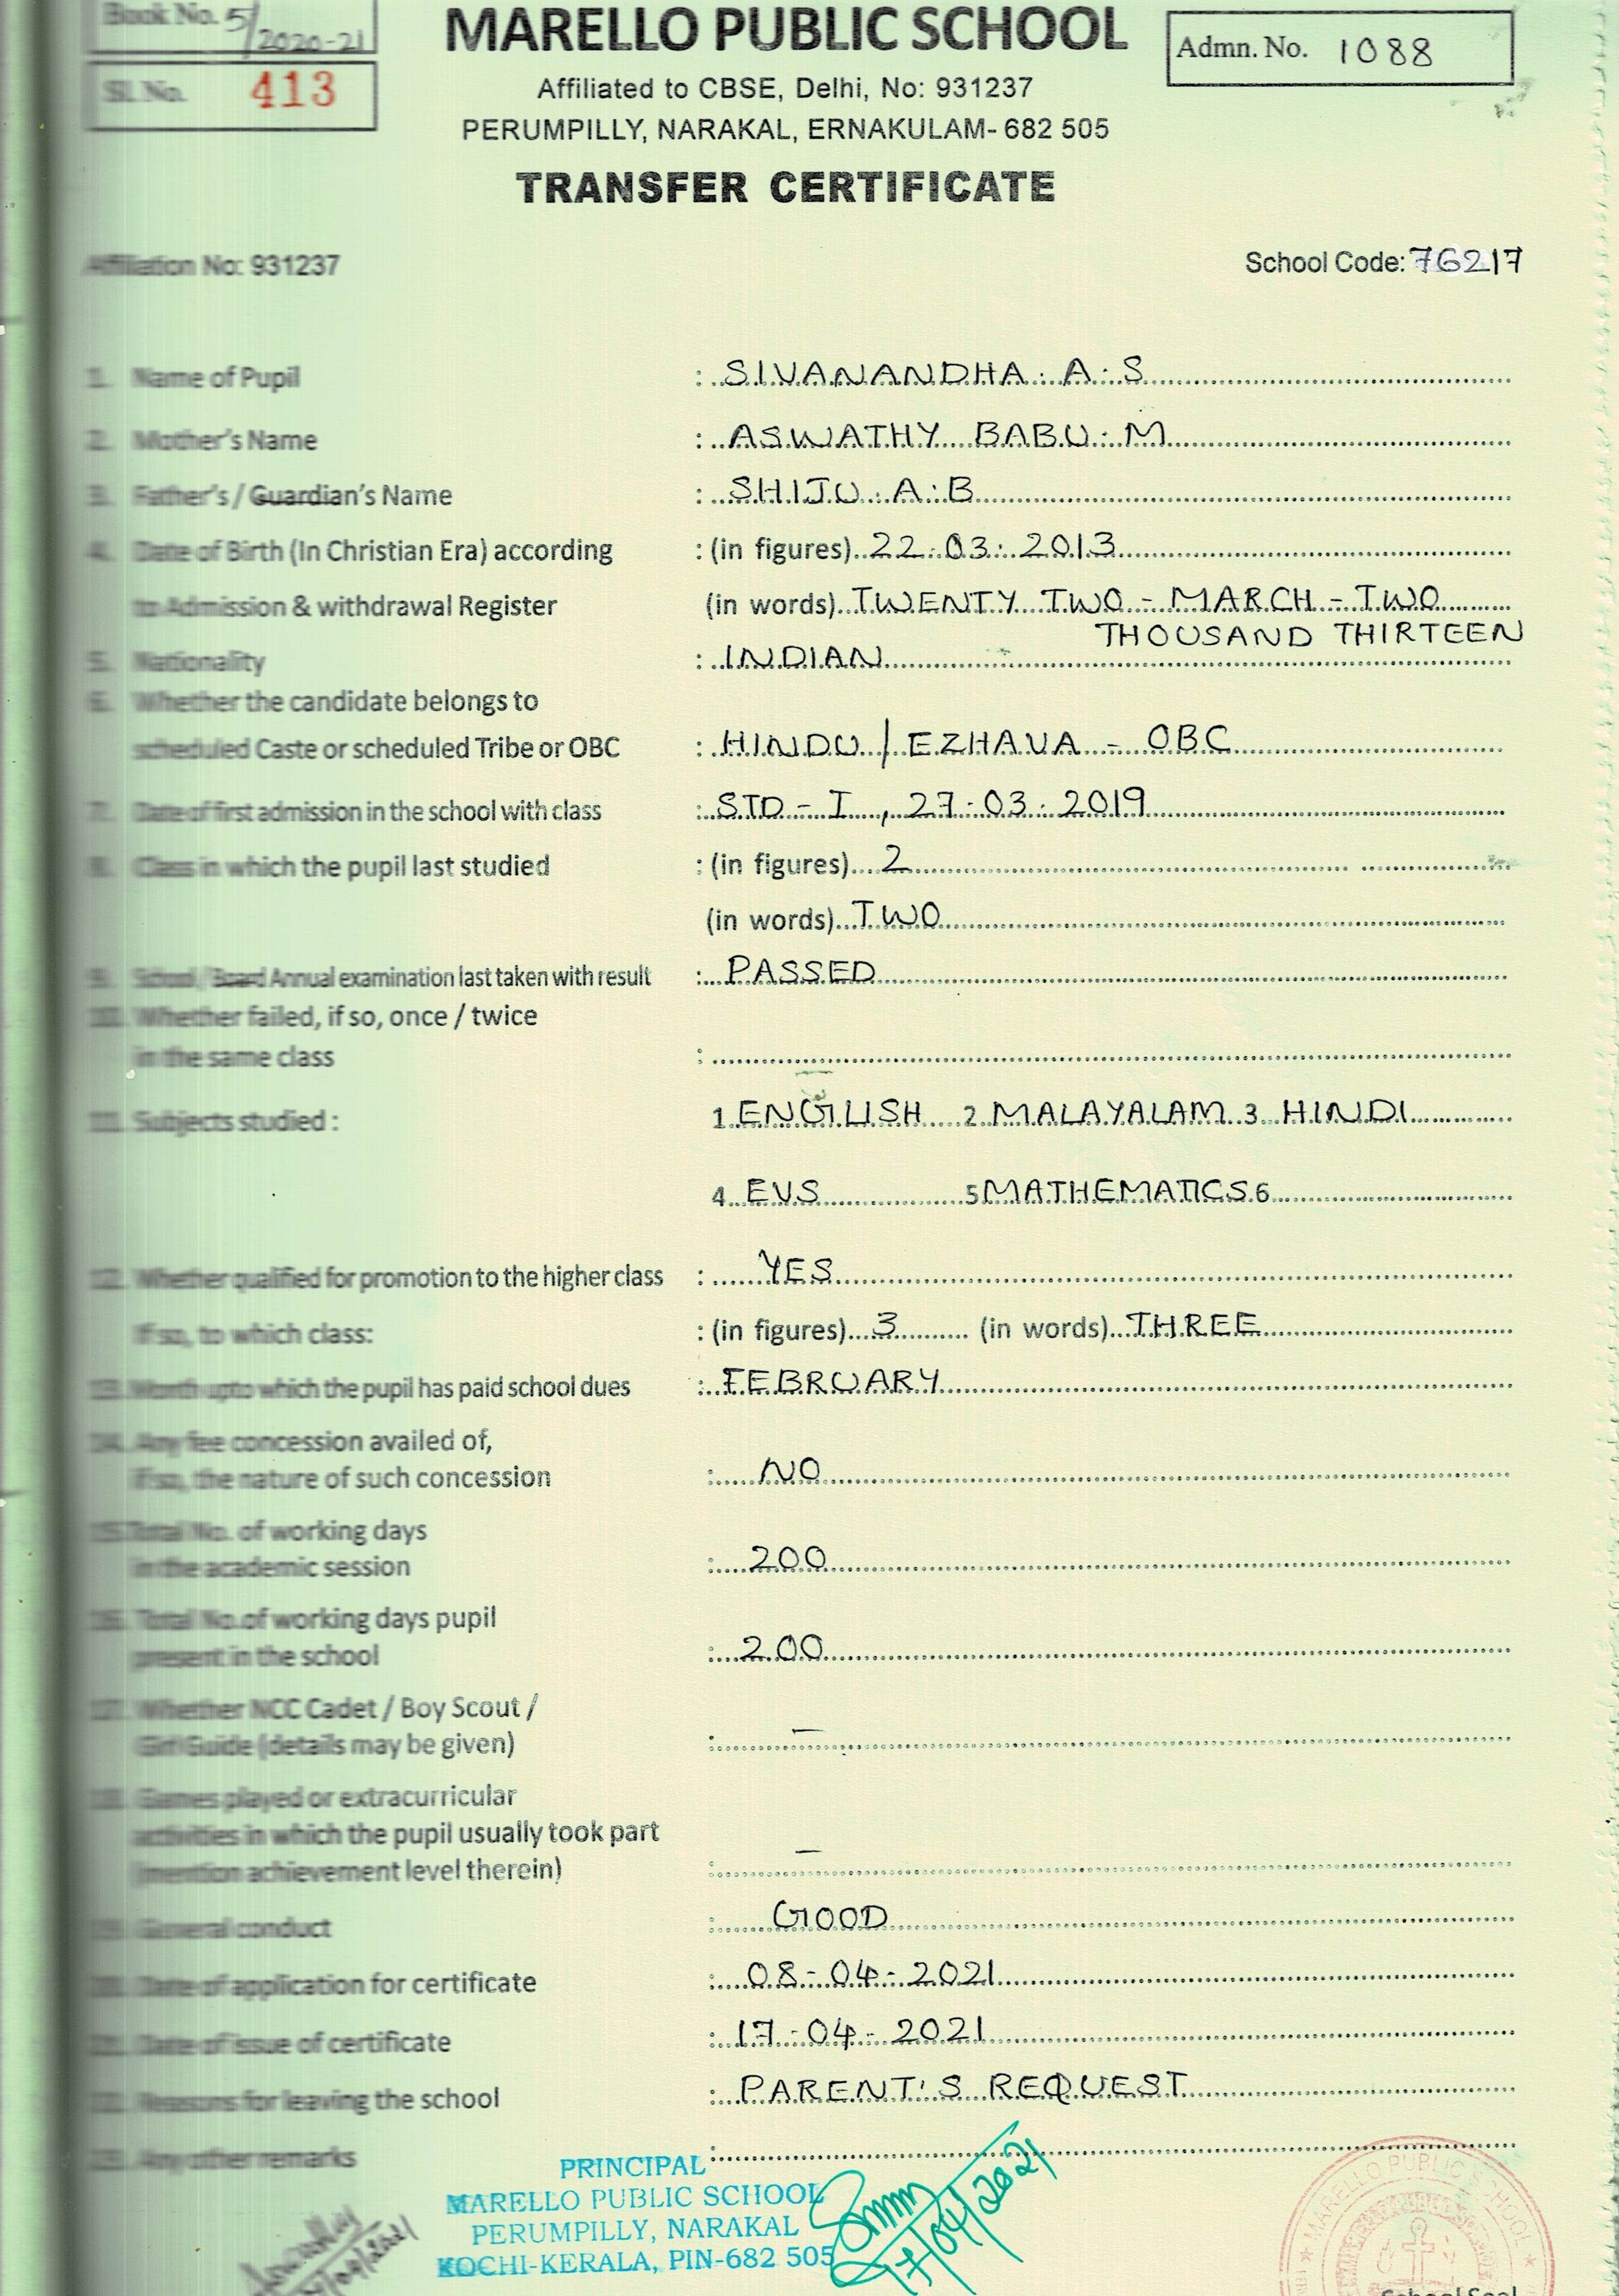 Book No. 5/2020-21
MARELLO PUBLIC SCHOOL
Admn. No. 1088
Sl. No. 413
Affiliated to CBSE, Delhi, No: 931237
PERUMPILLY, NARAKAL, ERNAKULAM- 682 505
TRANSFER CERTIFICATE
Affiliation No: 931237 School Code: 76217
1. Name of Pupil : SIVANANDHA. A. S
2. Mother's Name : ASWATHY BABU. M
3. Father's / Guardian's Name : SHIJU. A. B
4. Date of Birth (In Christian Era) according : (in figures) 22.03.2013
to Admission & withdrawal Register (in words) TWENTY TWO - MARCH - TWO
THOUSAND THIRTEEN
5. Nationality : INDIAN
6. Whether the candidate belongs to
scheduled Caste or scheduled Tribe or OBC : HINDU / EZHAVA - OBC
7. Date of first admission in the school with class : STD - I, 27.03.2019
8. Class in which the pupil last studied : (in figures) 2
(in words) TWO
9. School / Board Annual examination last taken with result : PASSED
10. Whether failed, if so, once / twice
in the same class : —
11. Subjects studied : 1 ENGLISH 2 MALAYALAM 3 HINDI
4 EVS 5 MATHEMATICS 6
12. Whether qualified for promotion to the higher class : YES
If so, to which class: : (in figures) 3 (in words) THREE
13. Month upto which the pupil has paid school dues : FEBRUARY
14. Any fee concession availed of,
if so, the nature of such concession : NO
15. Total No. of working days
in the academic session : 200
16. Total No. of working days pupil
present in the school : 200
17. Whether NCC Cadet / Boy Scout /
Girl Guide (details may be given) : —
18. Games played or extracurricular
activities in which the pupil usually took part
(mention achievement level therein) : —
19. General conduct : GOOD
20. Date of application for certificate : 08-04-2021
21. Date of issue of certificate : 17-04-2021
22. Reasons for leaving the school : PARENT'S REQUEST
23. Any other remarks :
PRINCIPAL
MARELLO PUBLIC SCHOOL
PERUMPILLY, NARAKAL
KOCHI-KERALA, PIN-682 505
17/04/2021
MARELLO PUBLIC SCHOOL
School Seal